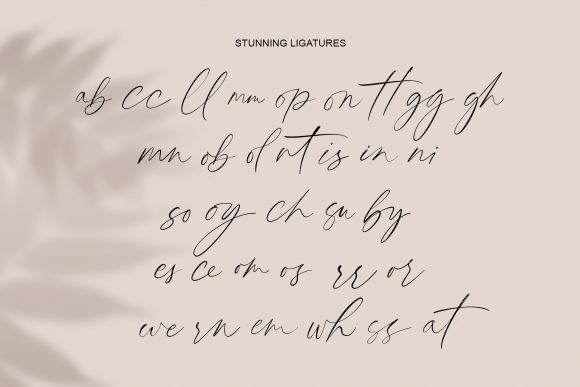 STUNNING LIGATURES
ab cc ll mm op on tt gg gh
mn ob ol nt is in ni
so oy ch su by
es ce om os rr or
we rn em wh ss at